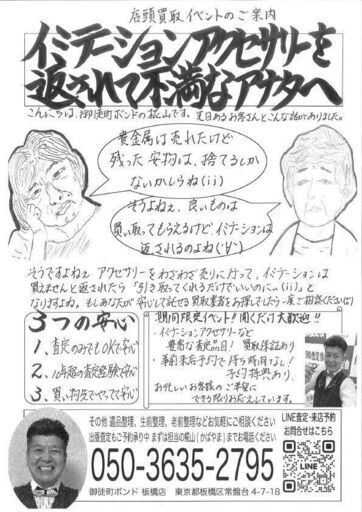 店頭買取イベントのご案内
イミテーションアクセサリーを
返されて不満なアナタへ
こんにちは、御徒町ボンドの梶山です。先日あるお客さんとこんな話がありました。
貴金属は売れたけど
残った安物は、捨てるしか
ないかしらね(ii)
そうよねぇ、良いものは
買い取ってもらえるけどイミテーションは
返されるのよね(;´Д`)
そうですよねぇ アクセサリーをわざわざ売りに行って、イミテーションは
買えませんと返されたら「引き取ってくれるだけでいいのに…(ii)」と
なりますよね。もしあなたが安心して託せる買取業者をお探しでしたら一度ご相談ください
3つの安心
1、査定のみでもOKで安心
2、16年超の査定経験で安心
3、買い物ついでで安心
期間限定イベント!聞くだけ大歓迎!!
・イミテーションアクセサリーなど
豊富な査定品目! 買取保証あり
・事前来店予約で待ち時間なし!
予約特典あり、
お忙しいお客様のご希望に
できる限りお応えしています。
その他 遺品整理、生前整理、老前整理などお気軽にご相談ください
出張査定もご予約承り中 まずは担当の梶山(かばやま)までお電話ください
050-3635-2795
御徒町ボンド 板橋店 東京都板橋区常盤台 4-7-18
LINE査定・来店予約
お問合せはこちら
LINE